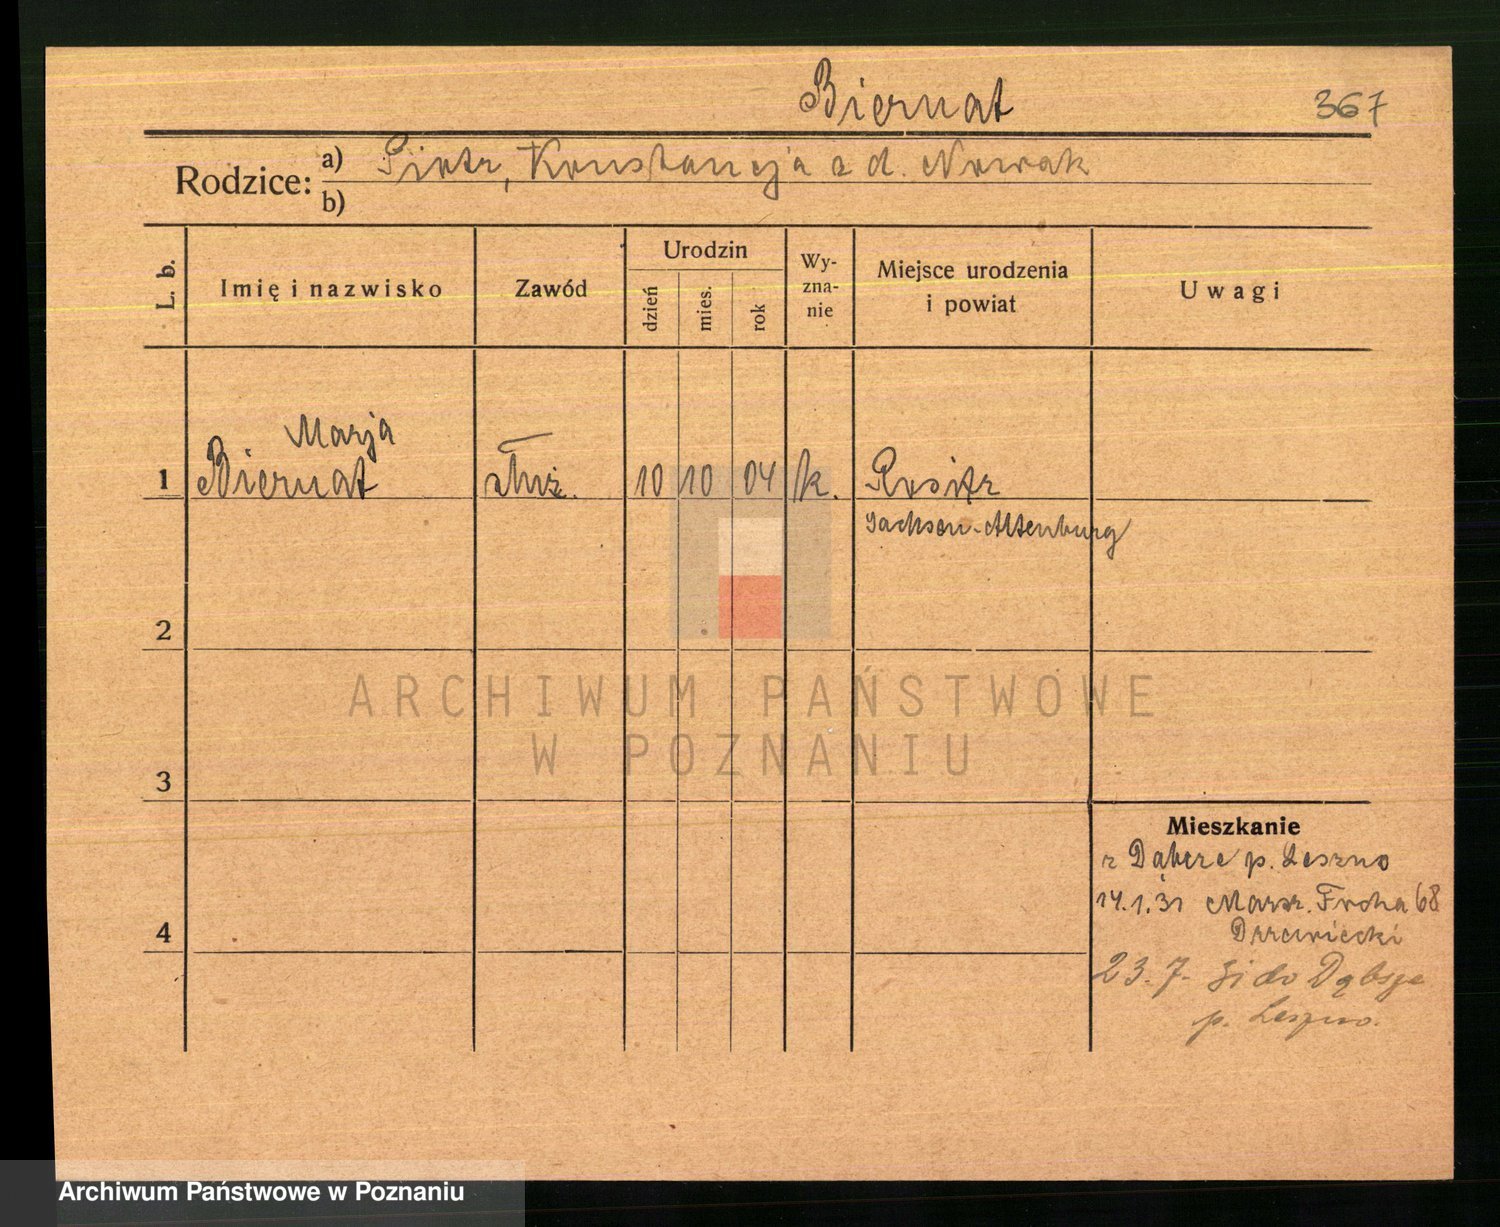 Biernat 367
Rodzice: a) Piotr, Konstancja z d. Nowak
b)
L. b. Imię i nazwisko Zawód Urodzin dzień mies. rok Wy-zna-nie Miejsce urodzenia i powiat Uwagi
Marja
1 Biernat służ. 10 10 04 k. Rositz
Sachsen-Altenburg
2
ARCHIWUM PAŃSTWOWE
W POZNANIU
3
Mieszkanie
z Dąbcze p. Leszno
14.1.31 Marsz. Focha 68
Drzewiecki
4
23.7. do Dąbcze
p. Leszno.
Archiwum Państwowe w Poznaniu